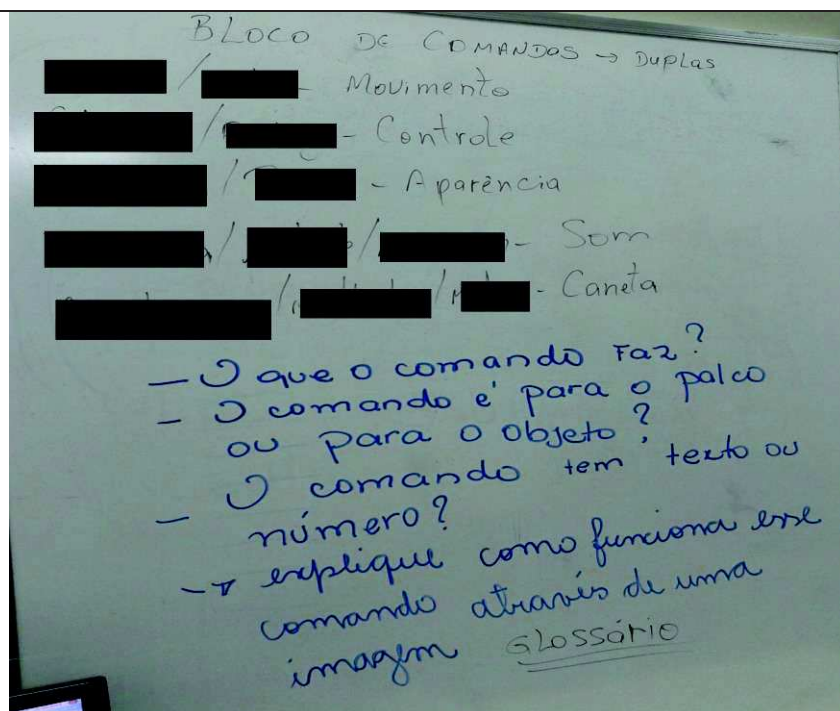 BLOCO DE COMANDOS → DUPLAS
/ - Movimento
/ - Controle
/ - Aparência
/ / - Som
/ / - Caneta
- O que o comando Faz?
- O comando é para o palco
ou para o objeto?
- O comando tem texto ou
número?
-→ explique como funciona esse
comando através de uma
imagem GLOSSÁRIO